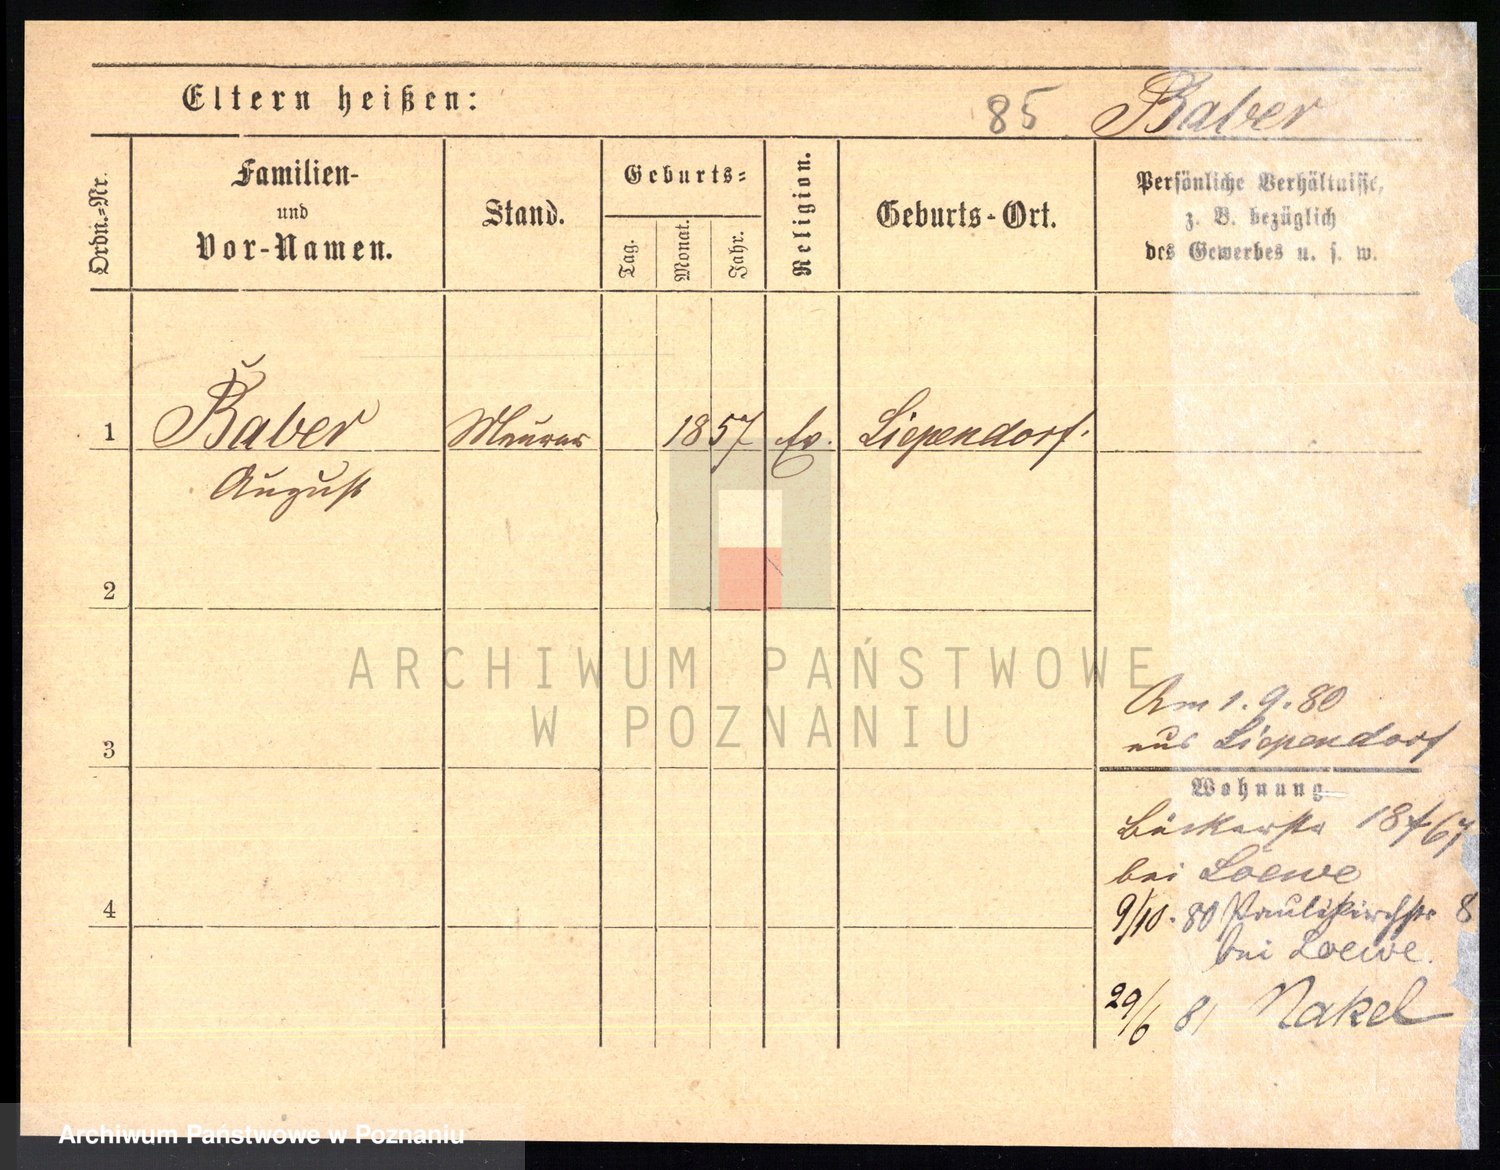 Eltern heißen:
85 Baber
Ordn.-Nr.
Familien-
und
Vor-Namen.
Stand.
Geburts-
Tag.
Monat.
Jahr.
Religion.
Geburts-Ort.
Persönliche Verhältnisse,
z. B. bezüglich
des Gewerbes u. s. w.
1 Baber Maurer 1857 Ev. Liependorf.
August
2
ARCHIWUM PAŃSTWOWE
W POZNANIU
3
Am 1.9.80
aus Liependorf
Wohnung
Bäckerstr
bei Loewe
4
9/10.80 Paulikirchstr 8
bei Loewe.
29/6 81 Nakel
Archiwum Państwowe w Poznaniu